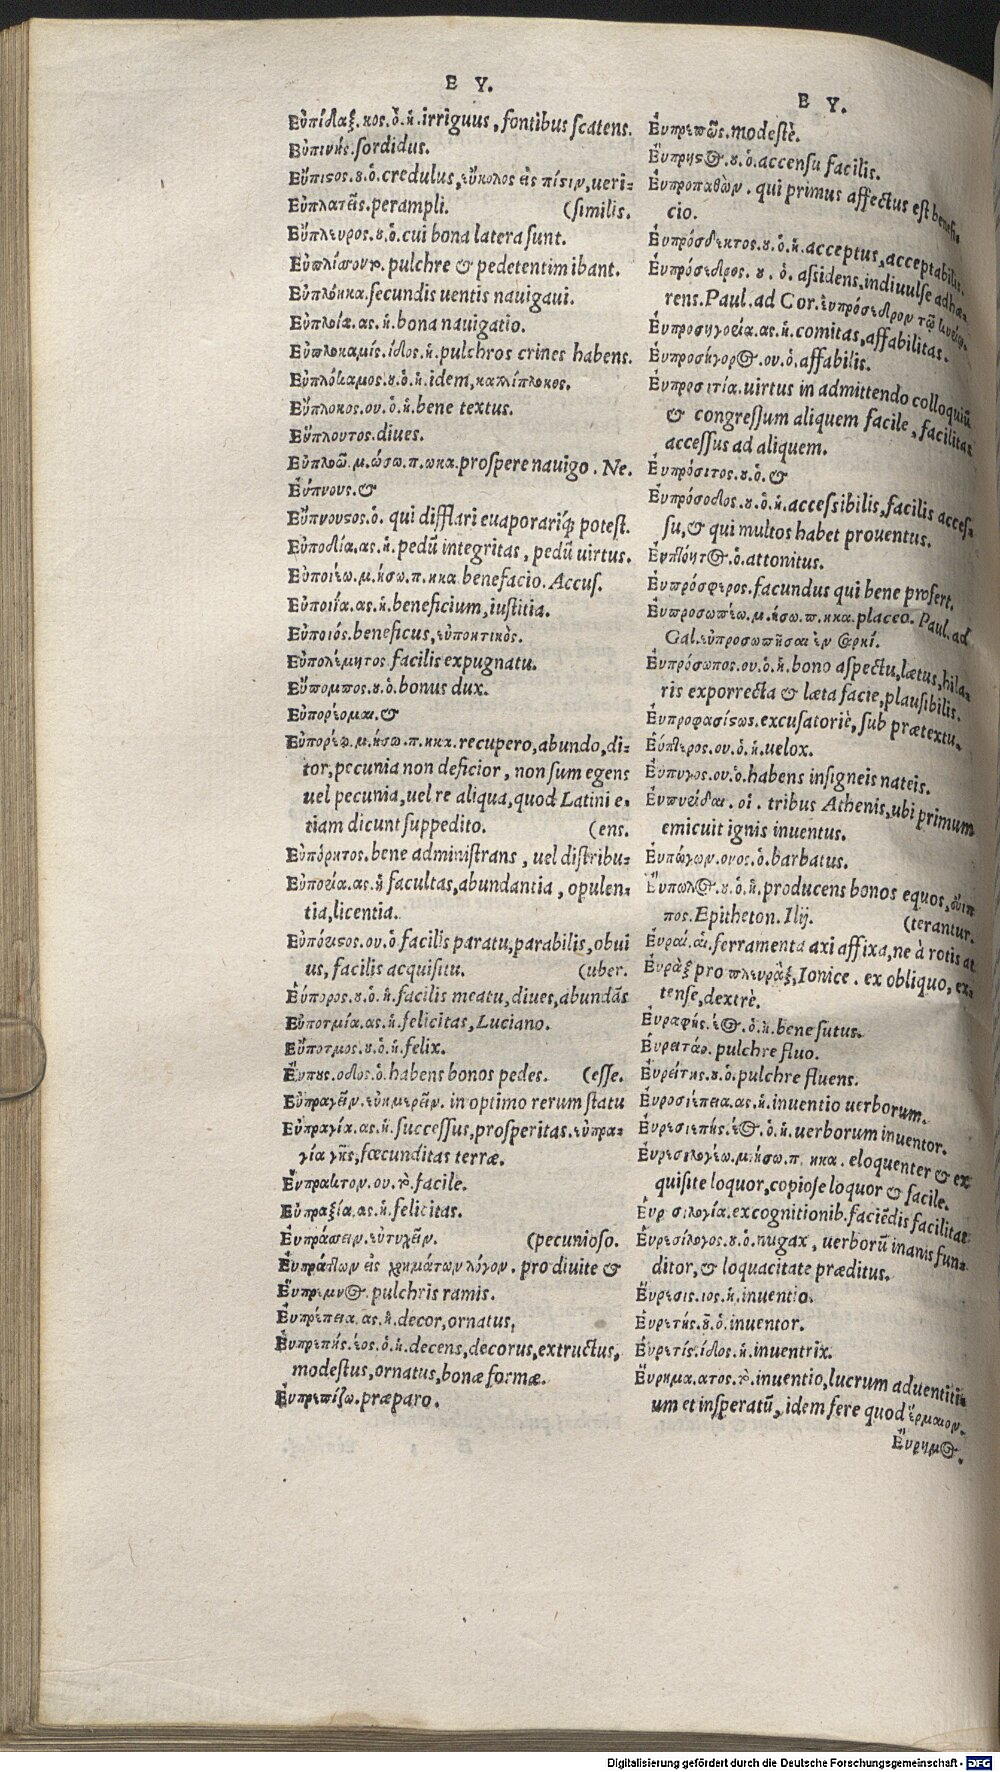 E Y.
Εὐπίδαξ.κος.ὁ.ἡ.irriguus, fontibus scatens.
Εὐπινής.sordidus.
Εὔπιςος.ου.ὁ.credulus,εὔκολος εἰς πίςιν,ueri-
Εὐπλατεῖς.perampli. (similis.
Εὔπλευρος.ου.ὁ.cui bona latera sunt.
pulchre & pedetentim ibant.
Εὐπλόηκα.secundis uentis nauigaui.
Εὔπλοια.ας.ἡ.bona nauigatio.
Εὐπλοκαμίς.ίδος.ἡ.pulchros crines habens.
Εὐπλόκαμος.ου.ὁ.ἡ.idem,
Εὔπλοκος.ου.ὁ.ἡ.bene textus.
Εὔπλουτος.diues.
Εὐπλοῶ.μ.ώσω.π.ωκα.prospere nauigo. Ne.
Εὔπνους.&
Εὔπνουςος.ὁ. qui difflari euaporariq́; potest.
Εὐποδία.ας.ἡ.pedũ integritas, pedũ uirtus.
Εὐποιέω.μ.ήσω.π.ηκα.benefacio. Accus.
Εὐποιΐα.ας.ἡ.beneficium,iustitia.
Εὐποιός.beneficus,εὐποιητικὸς.
Εὐπολέμητος.facilis expugnatu.
Εὔπομπος.ου.ὁ.bonus dux.
Εὐπορέομαι.&
Εὐπορέω.μ.ήσω.π.ηκα.recupero,abundo,di-
tor,pecunia non deficior, non sum egens
uel pecunia,uel re aliqua,quod Latini e-
tiam dicunt suppedito. (ens.
Εὐπόρητος.bene administrans, uel distribu-
Εὐπορία.ας.ἡ facultas,abundantia, opulen-
tia,licentia.
Εὐπόριςος.ου.ὁ facilis paratu,parabilis,obui
us, facilis acquisitu. (uber.
Εὔπορος.ου.ὁ.ἡ.facilis meatu,diues,abundãs
Εὐποτμία.ας.ἡ.felicitas, Luciano.
Εὔποτμος.ου.ὁ.ἡ.felix.
Εὔπους.οδος.ὁ.habens bonos pedes. (esse.
Εὐπραγεῖν.εὐημερεῖν. in optimo rerum statu
Εὐπραγία.ας.ἡ.successus,prosperitas.εὐπρα-
γία γῆς,fœcunditas terræ.
Εὔπρακτον.ου.τὸ.facile.
Εὐπραξία.ας.ἡ.felicitas.
Εὐπράσσειν.εὐτυχεῖν. (pecunioso.
Εὐπράττων εἰς χρημάτων λόγον. pro diuite &
Εὔπρεμνος.pulchris ramis.
Εὐπρέπεια.ας.ἡ.decor,ornatus,
Εὐπρεπής.έος.ὁ.ἡ.decens,decorus,extructus,
modestus,ornatus,bonæ formæ.
Εὐπρεπίζω.præparo.
E Y.
Εὐπρεπῶς.modestè.
Εὔπρηςος.ου.ὁ.accensu facilis.
Εὐπροπαθὼν. qui primus affectus est benefi-
cio.
Εὐπρόσδεκτος.ου.ὁ.ἡ.acceptus,acceptabilis.
Εὐπρόσεδρος. ου. ὁ. assidens,indiuulse adhæ-
rens.Paul.ad Cor.εὐπρόσεδρον τῷ κυρίῳ.
Εὐπροσηγορία.ας.ἡ.comitas,affabilitas.
Εὐπροσήγορος.ου.ὁ.affabilis.
Εὐπροσιτία.uirtus in admittendo colloquiũ
& congressum aliquem facile, facilitas
accessus ad aliquem.
Εὐπρόσιτος.ου.ὁ.&
Εὐπρόσοδος.ου.ὁ.ἡ.accessibilis,facilis acces-
su,& qui multos habet prouentus.
Εὐπτόητος.ὁ.attonitus.
Εὐπρόσφερος.facundus qui bene profert.
Εὐπροσωπέω.μ.ήσω.π.ηκα.placeo. Paul.ad
Gal.εὐπροσωπῆσαι ἐν σαρκί.
Εὐπρόσωπος.ου.ὁ.ἡ.bono aspectu,lætus,hila-
ris exporrecta & læta facie,plausibilis.
Εὐπροφασίςως.excusatoriè, sub prætextu.
Εὔπτερος.ου.ὁ.ἡ.uelox.
Εὔπυγος.ου.ὁ.habens insigneis nateis.
Εὐπυρίδαι. οἱ. tribus Athenis,ubi primum
emicuit ignis inuentus.
Εὐπώγων.ονος.ὁ.barbatus.
Εὔπωλος.ου.ὁ.ἡ.producens bonos equos,εὔιπ
πος.Epitheton. Ilij. (terantur.
Εὐραί.αἱ.ferramenta axi affixa,ne à rotis at
Εὐρὰξ pro πλευρὰξ,Ionice. ex obliquo, ex-
tense,dextrè.
Εὐραφής.έος.ὁ.ἡ.bene sutus.
pulchre fluo.
Εὐρείτης.ου.ὁ.pulchre fluens.
Εὑροσιέπεια.ας.ἡ.inuentio uerborum.
Εὑρεσιεπής.έος.ὁ.ἡ.uerborum inuentor.
Εὑρεσιλογέω.μ.ήσω.π. ηκα. eloquenter & ex
quisite loquor,copiose loquor & facile.
Εὑρεσιλογία.excognitionib.faciẽdis facilitas
Εὑρεσίλογος.ου.ὁ.nugax, uerborũ inanis fun-
ditor,& loquacitate præditus.
Εὕρεσις.ιος.ἡ.inuentio.
Εὑρετής.οῦ.ὁ.inuentor.
Εὑρετίς.ίδος.ἡ.inuentrix.
Εὕρημα.ατος.τὸ.inuentio,lucrum aduentiti-
um et insperatũ, idem fere quod ἕρμαιον.
Εὕρημος.